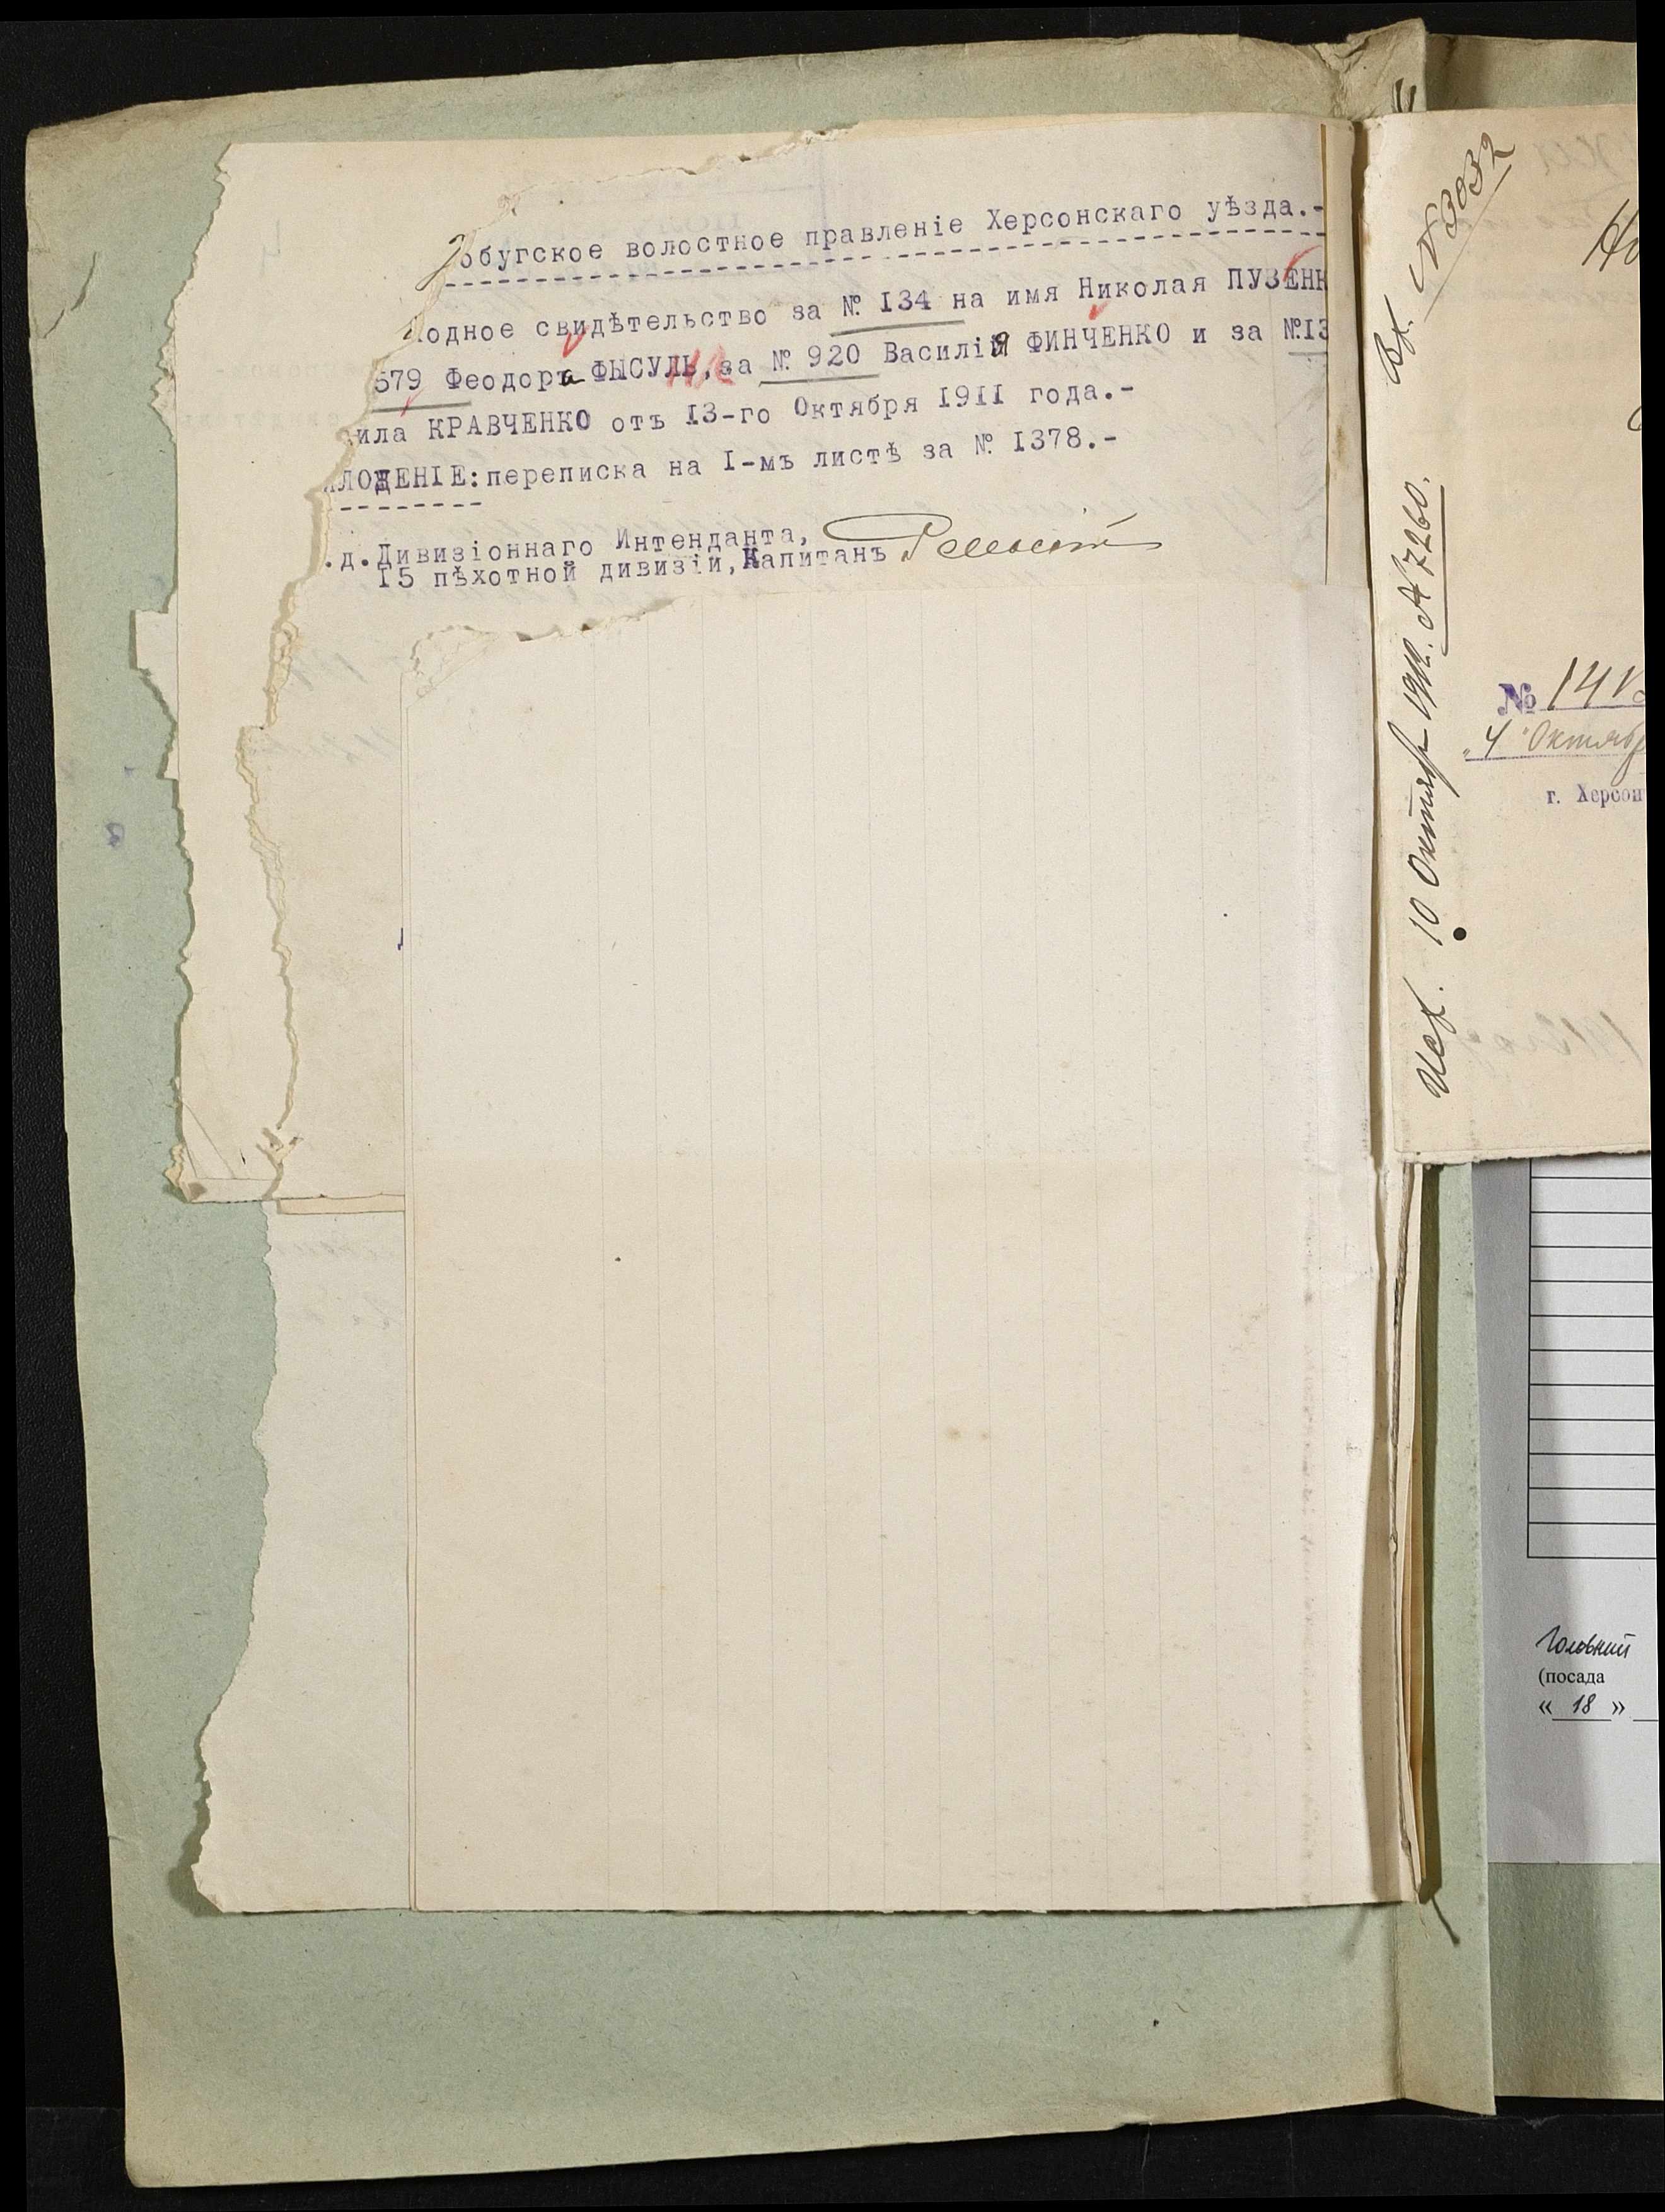 обугское волостное правленіе Херсонскаго уѣзда.-
одное свидѣтельство за № I34 на имя Николая ПУЗЕНК
579 Феодора ФЫСУЛЬ, за № 920 Василія ФИНЧЕНКО и за №I3
ила КРАВЧЕНКО отъ I3-го Октября I9II года.-
ЛОЖЕНІЕ: переписка на I-мъ листѣ за № I378.-
.д. Дивизіоннаго Интенданта,
I5 пѣхотной дивизіи, Капитанъ
Вх. №3032
Исх. 10 Октября 1912. № 7260.
Но
№ 14
"4" Октяб
г. Херсон
Головний
(посада
« 18 »